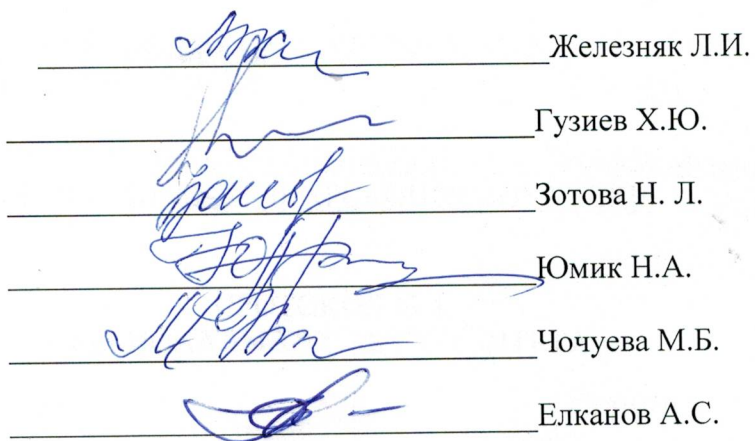 Железняк Л.И.
Гузиев Х.Ю.
Зотова Н. Л.
Юмик Н.А.
Чочуева М.Б.
Елканов А.С.